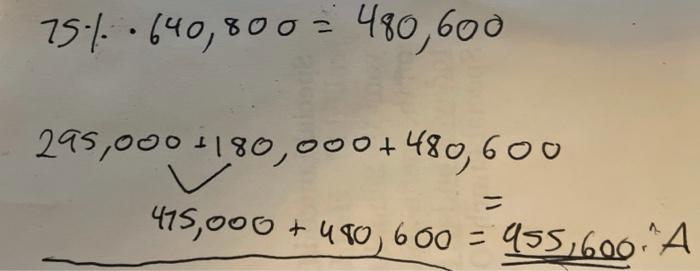 75% · 640,800 = 480,600
295,000 + 180,000 + 480,600
=
475,000 + 480,600 = 955,600. A